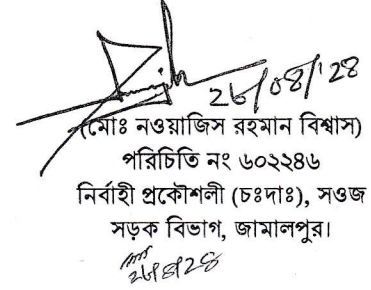 ২৮/০৪/'২৪
(মোঃ নওয়াজিস রহমান বিশ্বাস)
পরিচিতি নং ৬০২২৪৬
নির্বাহী প্রকৌশলী (চঃদাঃ), সওজ
সড়ক বিভাগ, জামালপুর।
২৮/৪/২৪